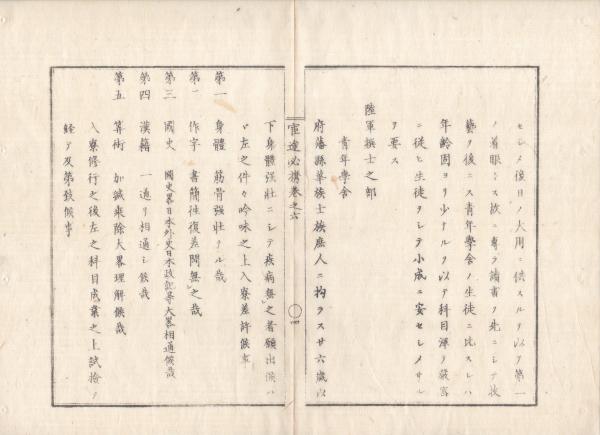 セシメ後日ノ大用ニ供スルヲ以テ第一
ノ着眼トス故ニ専ラ讀書ヲ先ニシテ技
藝ヲ後ニス青年學舎ノ生徒ニ比スレハ
年齢固ヨリ少ナルヲ以テ科目渾テ嚴宮
ニ従ヒ生徒ヲシテ小成ニ安セシメサル
ヲ要ス
陸軍撰士之部
青年學舎
府藩縣華族士族庶人ニ拘ラス廿六歳以
必携巻之六
四
下身體强壮ニシテ疾病無之者願出候ハ
ヽ左之件々吟味之上入寮差許候事
第一 身體 筋骨强壮ナル哉
第二 作字 書簡往復差閊無之哉
第三 國史 國史畧日本外史日本政記等大畧相通候哉
第四 漢籍 一通リ相通シ候哉
第五 算術 加減乗除大畧理解候哉
入寮修行之後左之科目成業之上試撿ヲ
経テ及第致候事